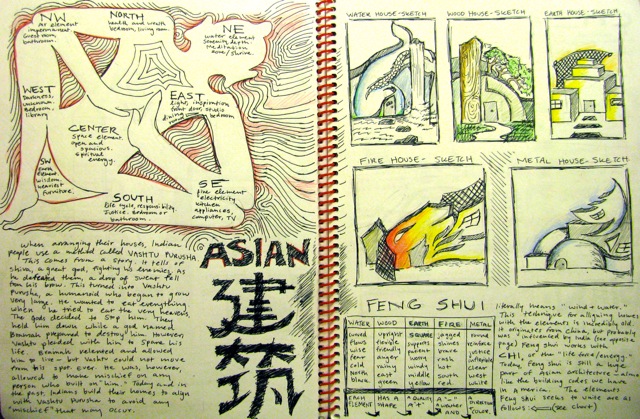 NW
Air element
impermanent
Guest room
bathroom.
NORTH
health and wealth
bedroom, living room.
NE
water element
Serenity, depth
Meditation
zone / Shrine.
WEST
Darkness,
bedroom,
library
EAST
light, inspiration
front door, studio
dining
bedroom
CENTER
space element
open and
spacious,
spiritual
energy.
SW
element
wisdom
heaviest
furniture.
SOUTH
life cycle, responsibility,
Justice. Bedroom or
bathroom.
SE
fire element
electricity
kitchen
appliances,
computer, TV
When arranging their houses, Indian
people use a method called VASHTU PURUSHA
This comes from a story. It tells of
Shiva, a great god, fighting his enemies. As
he defeated them, a drop of sweat fell
from his brow. This turned into Vashtu
Purusha, a humanoid who began to grow
very large. He wanted to eat everything
when he tried to eat the very heavens,
The gods decided to stop him. They
held him down while a god named
Brahmah prepared to destroy him. However,
Vashtu pleaded with him to spare his
life. Brahmah relented and allowed
him to live - but Vashtu could not move
from his spot ever. He was, however,
allowed to make mischief on any
person who built on "him." Today and in
the past Indians build their homes to align
with Vashtu Purusha to avoid any
mischief that may occur.
ASIAN
建築
WATER HOUSE-SKETCH
WOOD HOUSE-SKETCH
EARTH HOUSE-SKETCH
FIRE HOUSE-SKETCH
METAL HOUSE-SKETCH
FENG SHUI
WATER WOOD EARTH FIRE METAL
upright SQUARE jagged
flows flexible supports
wise friendly patient brave
fear anger worry rash justice
cold rainy warm hot clear
north east middle south west
black green yellow red white
EACH ELEMENT HAS A SHAPE A QUALITY A "+" A "-" A WEATHER AND DIRECTION COLOR.
literally means "wind & water."
This technique for aligning homes
with the elements is incredibly old.
It originates from China, but probably
was influenced by India (see opposite
page) Feng Shui works with
CHI, or the "life force/energy."
Today Feng Shui is still a large
power of Asian architecture - almost
like the building codes we have
in America. The elements
Feng Shui seeks to unite are as
follows: (see chart)